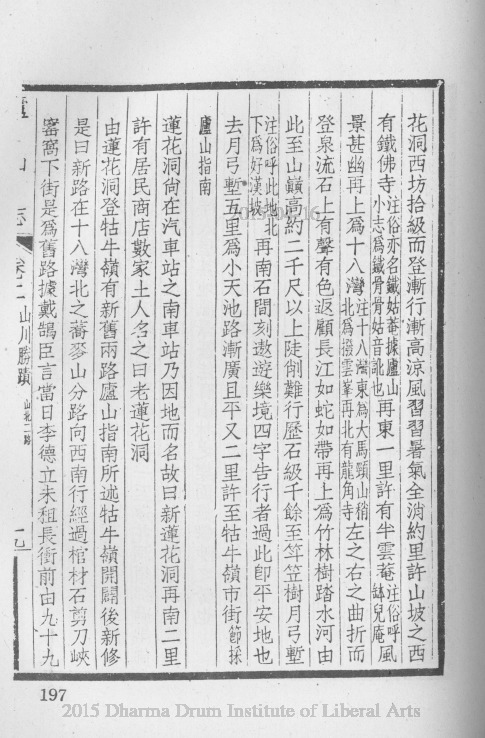 花洞西坊拾級而登漸行漸高涼風習習暑氣全消約里許山坡之西
有鐵佛寺注俗亦名鐵姑菴據廬山
小志爲鐵骨姑音訛也再東一里許有半雲菴注俗呼
鉢兒庵風
景甚幽再上爲十八灣注十八灣東爲大馬頸山稍
北爲撥雲峯再北有龍角寺左之右之曲折而
登泉流石上有聲有色返顧長江如蛇如帶再上爲竹林樹踏水河由
此至山巔高約二千尺以上陡削難行歷石級千餘至竿笠樹月弓塹
注俗呼此地北
下爲好漢坡再南石間刻遨遊樂境四字告行者過此即平安地也
去月弓塹五里爲小天池路漸廣且平又二里許至牯牛嶺市街節採
廬山指南
蓮花洞尙在汽車站之南車站乃因地而名故曰新蓮花洞再南二里
許有居民商店數家土人名之曰老蓮花洞
由蓮花洞登牯牛嶺有新舊兩路廬山指南所述牯牛嶺開闢後新修
是曰新路在十八灣北之蕎麥山分路向西南行經過棺材石剪刀峽
窰窩下街是爲舊路據戴鵠臣言當日李德立未租長衝前由九十九
山志
卷二
山川勝蹟
山北二路
一九
197
2015 Dharma Drum Institute of Liberal Arts